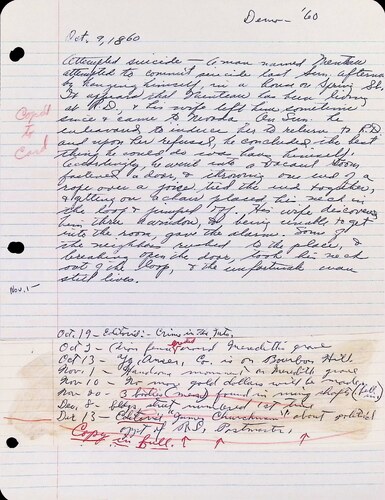 Demo - '60
Oct. 9, 1860
Attempted suicide - A man named Trenteau
attempted to commit suicide last Sun. afternoon
by hanging himself, in a house on Spring St.
It appears that Trenteau has been living
at R.D. & his wife left him sometime
since & came to Nevada On Sun. he
endeavored to induce her to return to R.D.
and upon her refusal, he concluded the best
thing he could do was to hang himself.
Accordingly he went into a vacant room,
fastened a door, & throwing one end of a
rope over a joice, tied the ends together,
& getting on a chair placed his neck in
the loop & jumped off. His wife discovered
him thru a window, & being unable to get
into the room, gave the alarm. Some of
the neighbors rushed to the place, &
breaking open the door, took his neck
out of the loop, & the unfortunate man
still lives.
Copied
to
Card
Nov. 1 -
Oct. 19 - Editorial - Crime in the
Oct 9 - Iron fence around Meredith's grave
Oct 13 - Co. is on Bourbon Hill
Nov. 1 - monument on Meredith grave
Nov 10 - No more gold dollars will be made
Nov 20 - 3 bodies (men) found in mine shafts
Dec. 8 - Bldgs, street numbered 1st time
Dec 13 - Editorial "Churchman" about political
appt of R.D. Postmaster,
Copy in full.